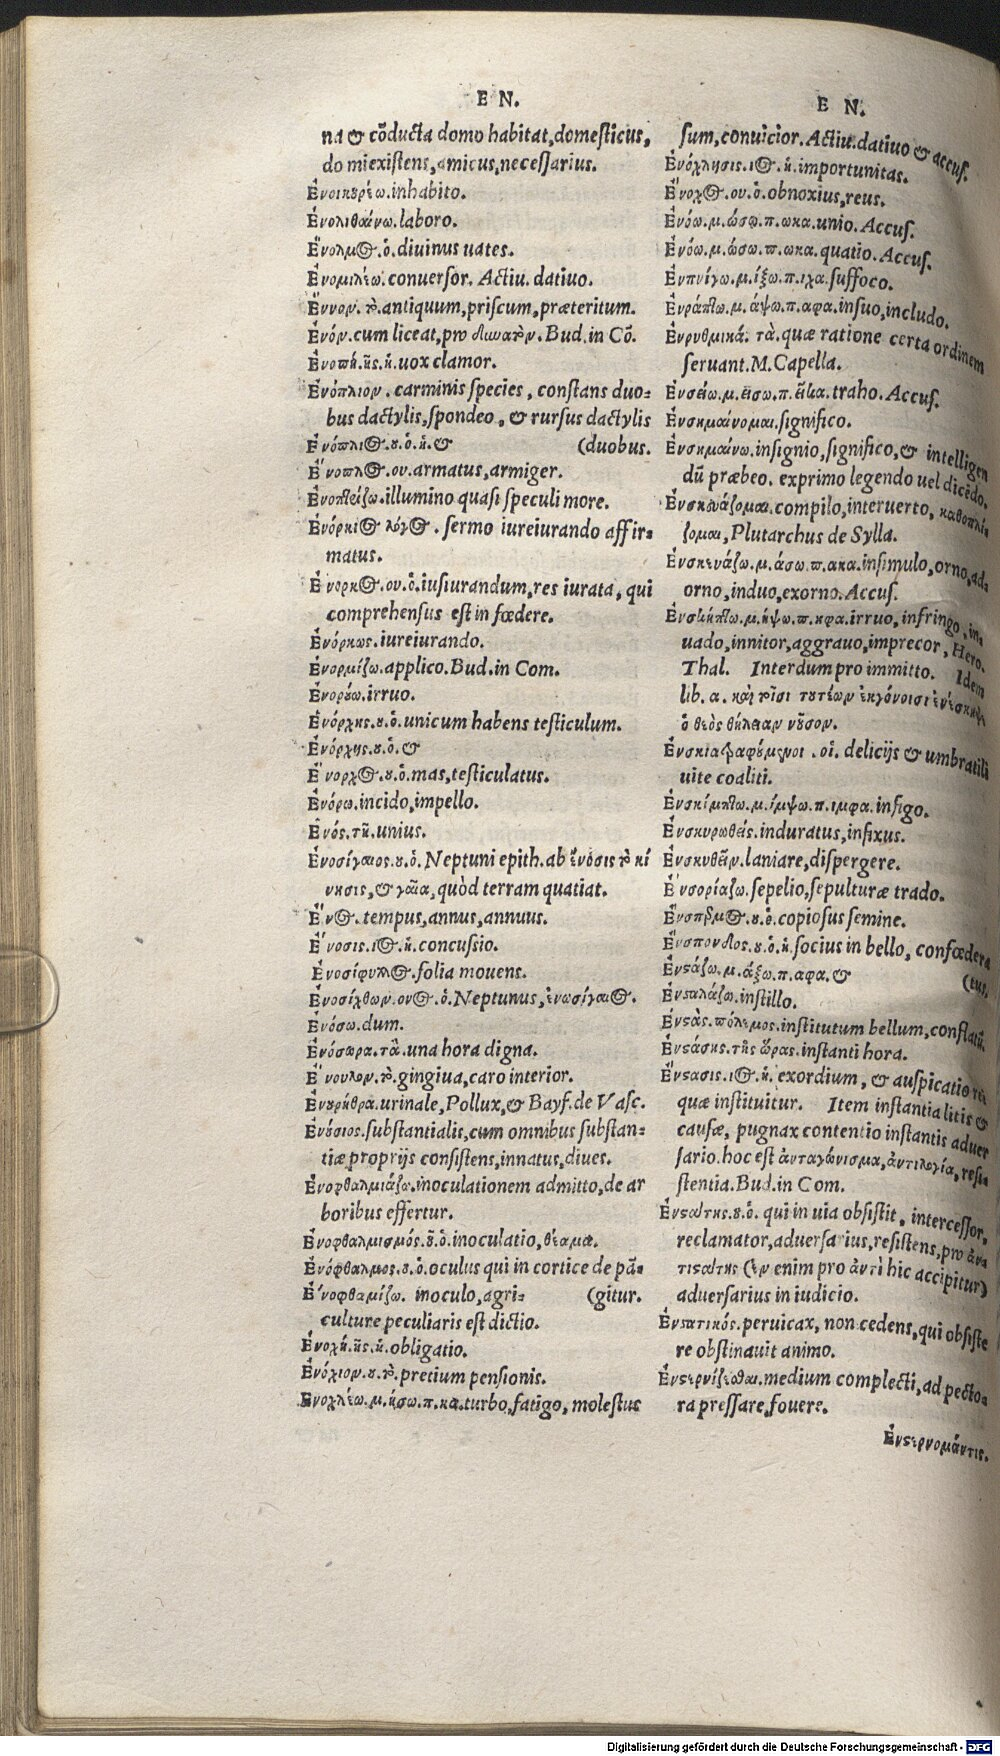 E N.
na & cõducta domo habitat, domesticus,
domi existens, amicus, necessarius.
Ἐνοικουρέω. inhabito.
Ἐνολιθαίνω. laboro.
Ἔνολμος. ὁ. diuinus uates.
Ἐνομιλέω. conuersor. Actiu. datiuo.
Ἔννον. τὸ. antiquum, priscum, præteritum.
Ἐνόν. cum liceat, pro δυνατὸν. Bud. in Cõ.
Ἐνοπή. ῆς. ἡ. uox clamor.
Ἐνόπλιον. carminis species, constans duo-
bus dactylis, spondeo, & rursus dactylis
Ἐνόπλιος. ου. ὁ. ἡ. & (duobus.
Ἔνοπλος. ου. armatus, armiger.
Ἐνοπτρίζω. illumino quasi speculi more.
Ἐνόρκιος λόγος. sermo iureiurando affir-
matus.
Ἔνορκος. ου. ὁ. iusiurandum, res iurata, qui
comprehensus est in fœdere.
Ἐνόρκως. iureiurando.
Ἐνορμίζω. applico. Bud. in Com.
Ἐνορούω. irruo.
Ἐνόρχης. ου. ὁ. unicum habens testiculum.
Ἐνόρχης. ου. ὁ. &
Ἔνορχος. ου. ὁ. mas, testiculatus.
Ἐνόρω. incido, impello.
Ἑνός. τῆ. unius.
Ἐνοσίγαιος. ου. ὁ. Neptuni epith. ab ἔνοσις τὸ κί
νησις, & γαῖα, quòd terram quatiat.
Ἔνος. tempus, annus, annuus.
Ἔνοσις. ιος. ἡ. concussio.
Ἐνοσίφυλλος. folia mouens.
Ἐνοσίχθων. ονος. ὁ. Neptunus, ἐνωσίγαιος.
Ἐνόσω. dum.
Ἐνόσωρα. τὰ. una hora digna.
Ἔνουλον. τὸ. gingiua, caro interior.
Ἐνουρήθρα. urinale, Pollux, & Bayf. de Vasc.
Ἐνούσιος. substantialis, cum omnibus substan-
tiæ proprijs consistens, innatus, diues.
Ἐνοφθαλμιάζω. inoculationem admitto, de ar
boribus effertur.
Ἐνοφθαλμισμός. οῦ. ὁ. inoculatio, θέαμα.
Ἐνόφθαλμος. ου. ὁ. oculus qui in cortice de pã-
Ἐνοφθαμίζω. inoculo, agri- (gitur.
culture peculiaris est dictio.
Ἐνοχή. ῆς. ἡ. obligatio.
Ἐνόχιον. ου. τὸ. precium pensionis.
Ἐνοχλέω. μ. ήσω. π. κα. turbo, fatigo, molestus
E N.
sum, conuicior. Actiu. datiuo & accus.
Ἐνόχλησις. ιος. ἡ. importunitas.
Ἔνοχος. ου. ὁ. obnoxius, reus.
Ἑνόω. μ. ώσω. π. ωκα. unio. Accus.
Ἐνόω. μ. ώσω. π. ωκα. quatio. Accus.
Ἐνπνίγω. μ. ίξω. π. ιχα. suffoco.
Ἐνράπτω. μ. άψω. π. αφα. insuo, includo.
Ἐνρυθμικά. τὰ. quæ ratione certa ordinem
seruant. M. Capella.
Ἐνσείω. μ. είσω. π. εικα. traho. Accus.
Ἐνσημαίνομαι. significo.
Ἐνσημαίνω. insignio, significo, & intelligen
dũ præbeo. exprimo legendo uel dicẽdo.
Ἐνσκευάζομαι. compilo, interuerto, καθοπλί
ζομαι, Plutarchus de Sylla.
Ἐνσκευάζω. μ. άσω. π. ακα. insimulo, orno, ad-
orno, induo, exorno. Accus.
Ἐνσκήπτω. μ. ήψω. π. ηφα. irruo, infringo, in-
uado, innitor, aggrauo, imprecor, Hero.
Thal. Interdum pro immitto. Idem
lib. α. καὶ τοῖσι τουτέων ἐκγόνοισι ἐνέσκηψε
ὁ θεὸς θήλειαν νοῦσον.
Ἐνσκιατραφούμενοι. οἱ. delicijs & umbratili
uite coaliti.
Ἐνσκίμπτω. μ. ίμψω. π. ιμφα. infigo.
Ἐνσκυρωθείς. induratus, infixus.
Ἐνσκυθεῖν. laniare, dispergere.
Ἐνσοριάζω. sepelio, sepulturæ trado.
Ἔνσπερμος. ου. ὁ. copiosus semine.
Ἔνσπονδος. ου. ὁ. ἡ. socius in bello, confœdera
Ἐνστάζω. μ. άξω. π. αφα. & (tus.
Ἐνσταλάζω. instillo.
Ἐνστὰς. πόλεμος. institutum bellum, conflatũ.
Ἐνστάσης. τῆς ὥρας. instanti hora.
Ἔνστασις. ιος. ἡ. exordium, & auspicatio rei
quæ instituitur. Item instantia litis &
causæ, pugnax contentio instantis aduer
sario. hoc est ἀνταγώνισμα, ἀντιλογία, resi-
stentia. Bud. in Com.
Ἐνστάτης. ου. ὁ. qui in uia obsistit, intercessor,
reclamator, aduersarius, resistens, pro ἀν-
τιστάτης (ἐν enim pro ἀντὶ hic accipitur)
aduersarius in iudicio.
Ἐνστατικός. peruicax, non cedens, qui obsiste
re obstinauit animo.
Ἐνστερνίζεσθαι. medium complecti, ad pecto-
ra pressare, fouere.
Ἐνστερνομάντις.
Digitalisierung gefördert durch die Deutsche Forschungsgemeinschaft - DFG